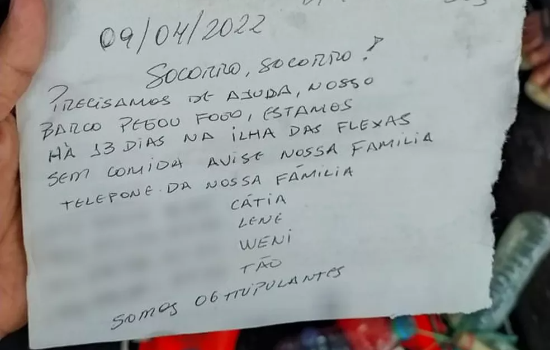 09/04/2022
SOCORRO, SOCORRO!
PRECISAMOS DE AJUDA, NOSSO
BARCO PEGOU FOGO, ESTAMOS
HÀ 13 DIAS NA ILHA DAS FLEXAS
SEM COMIDA AVISE NOSSA FAMILIA
TELEFONE DA NOSSA FÁMILIA
CÁTIA
LENE
WENI
TÃO
SOMOS 06 TRIPULANTES